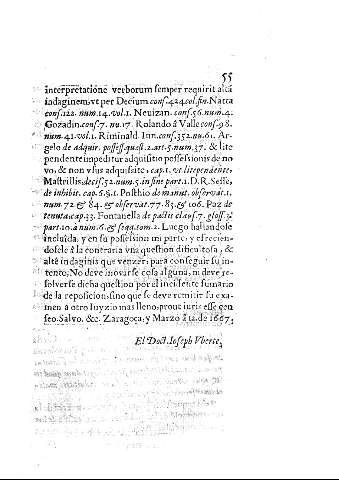 55
interpretatione verborum semper requirit altã
indaginem, vt per Decium cons. 424. col. fin. Natta
cons. 122. num. 14. vol. 1. Neuizan. cons. 56. num. 4.
Gozadin. cons. 7. nu. 17. Rolando à Valle cons. 98.
num. 41. vol. 1. Riminald. Iun. cons. 352. nu. 61. Ar-
gelo de adquir. possess. quæst. 2. art. 5. num. 37. & lite
pendente impeditur adquisitio possessionis de no
vo, & non vsus adquisitæ, cap. 1. vt lite pendente,
Mastrillis decis. 52. num. 5. in fine part. 1. D. R. Sesse,
de inhibit. cap. 6. §. 1. Posthio de manut. observat. 1.
num. 72 & 84. & observat. 77. 83. & 106. Paz de
tenuta, cap. 33. Fontanella de pactis claus. 7. gloss. 3.
part. 10. à num. 6. & seqq. tom. 2. Luego hallandose
incluida, y en su possession mi parte, y ofrecien-
dosele à la contraria vna question dificultosa, &
altæ indaginis que vencer, para conseguir su in-
tento; No deve inovarse cosa alguna, ni deve re-
solverse dicha question por el incidente sumario
de la reposicion, sino que se deve remitir su exa-
men à otro Iuyzio mas lleno, prout iuris esse cen
seo. Salvo, &c. Zaragoça, y Marzo à 12. de 1667.
El Doct. Ioseph Vberte,